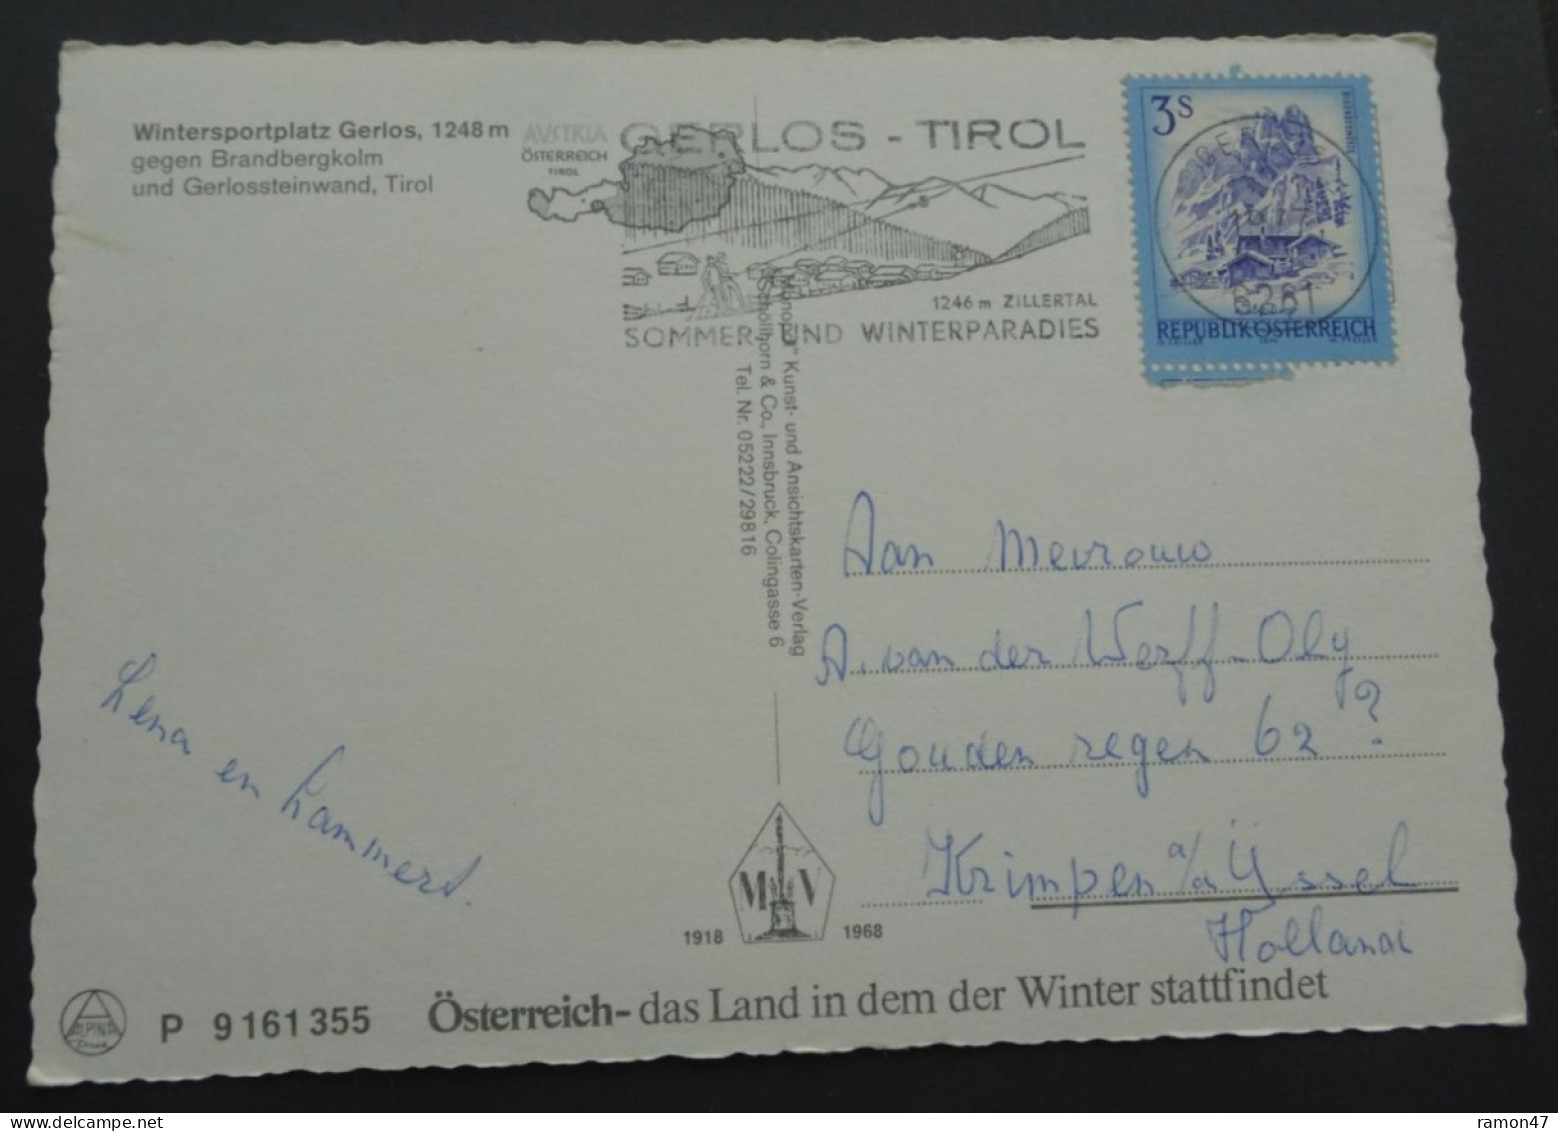 Wintersportplatz Gerlos, 1248 m
gegen Brandbergkolm
und Gerlossteinwand, Tirol
AUSTRIA
ÖSTERREICH
TIROL
GERLOS - TIROL
1246 m ZILLERTAL
SOMMER- UND WINTERPARADIES
3S
REPUBLIK ÖSTERREICH
6281
„Monopol" Kunst- und Ansichtskarten-Verlag
Schöllhorn & Co., Innsbruck, Colingasse 6
Tel. Nr. 05222/29816
Aan Mevrouw
A. van der Werff-Oly
Gouden regen 62 ?
Krimpen a/d Yssel
Holland
Lena en Lammert.
M V
1918 1968
ALPINA
P 9161355
Österreich- das Land in dem der Winter stattfindet
ramon47